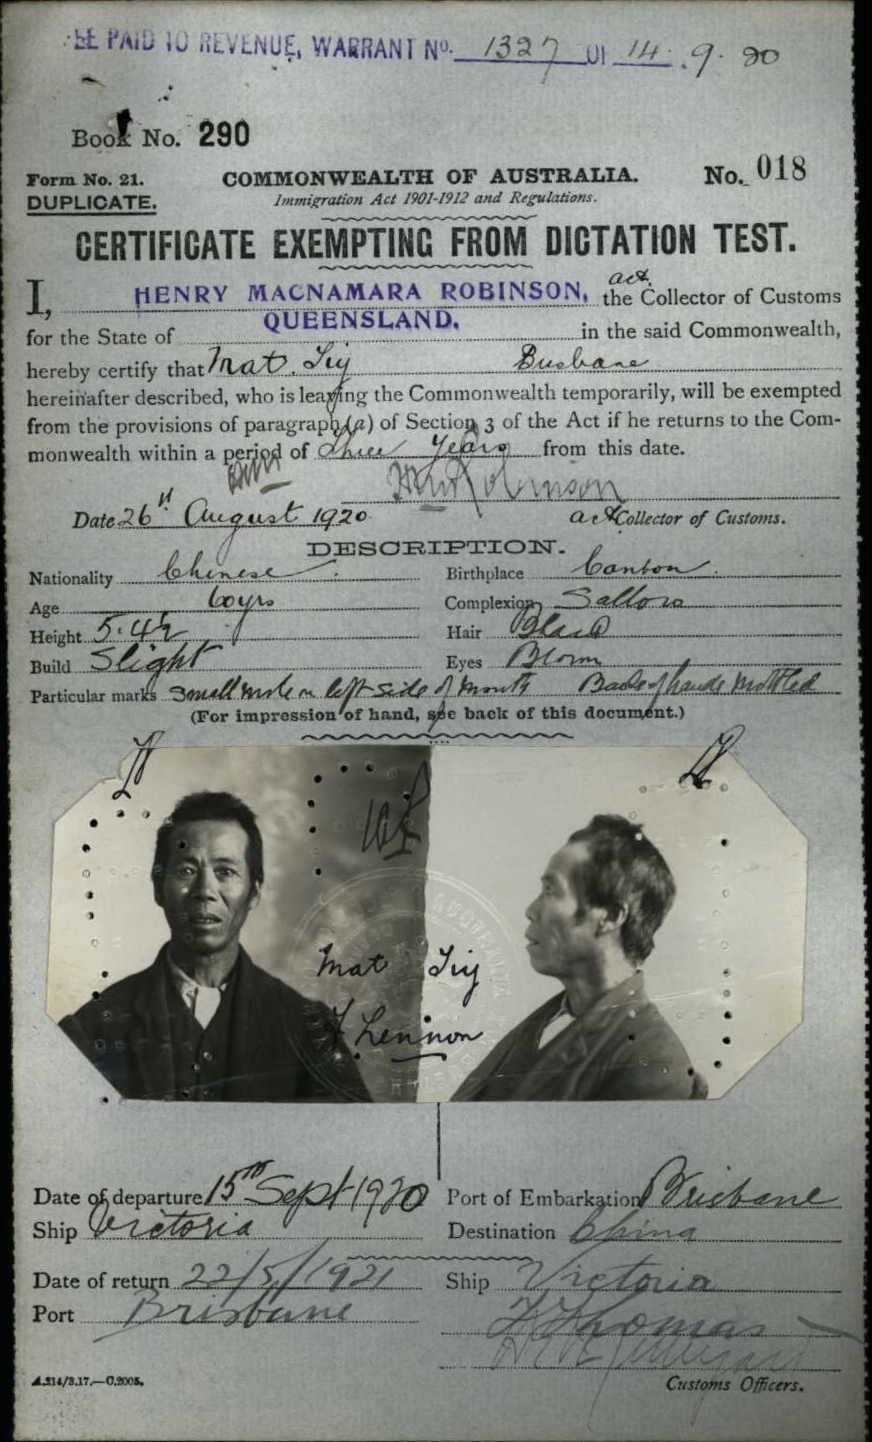 EE PAID TO REVENUE, WARRANT No. 1327 OF 14.9.20
Book No. 290
Form No. 21. COMMONWEALTH OF AUSTRALIA. No. 018
DUPLICATE. Immigration Act 1901-1912 and Regulations.
CERTIFICATE EXEMPTING FROM DICTATION TEST.
act.
I, HENRY MACNAMARA ROBINSON, the Collector of Customs
for the State of QUEENSLAND, in the said Commonwealth,
hereby certify that Mat Tiy Brisbane
hereinafter described, who is leaving the Commonwealth temporarily, will be exempted
from the provisions of paragraph (a) of Section 3 of the Act if he returns to the Com-
monwealth within a period of three years from this date.
HMRobinson
Date 26th August 1920 act Collector of Customs.
DESCRIPTION.
Nationality Chinese Birthplace Canton
Age 60yrs Complexion Sallow
Height 5.4½ Hair Black
Build Slight Eyes Brown
Particular marks Small mole on left side of mouth Backs of hands mottled
(For impression of hand, see back of this document.)
Mat Tiy
Lennon
Date of departure 15th Sept 1920 Port of Embarkation Brisbane
Ship Victoria Destination China
Date of return 22/5/1921 Ship Victoria
Port Brisbane
Thomas
A.214/3.17.—C.2005. Customs Officers.